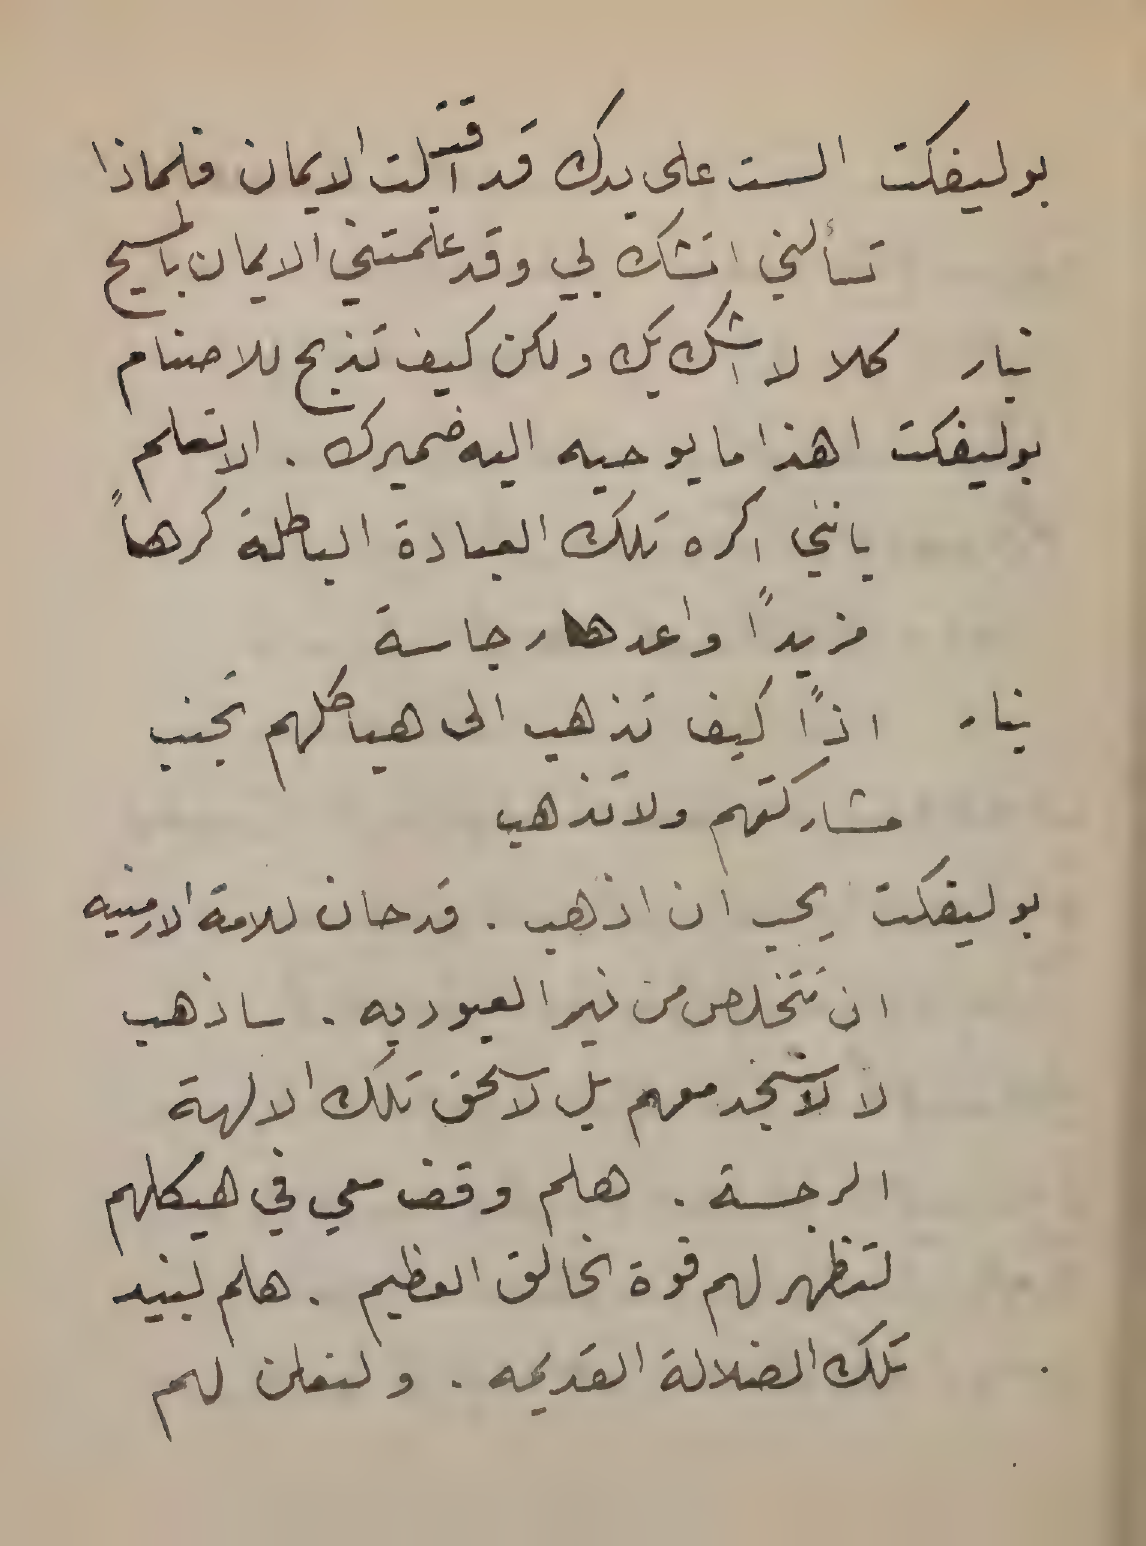 بوليفكت الست على يدك قد اقتبلت الايمان فلماذا
تسألني اتشك بي وقد علمتني الايمان بالمسيح
نيار كلا لا اشك بك ولكن كيف تذبح للاصنام
بوليفكت اهذا ما يوحيه اليه ضميرك . الا تعلم
بانني اكره تلك العبادة الباطلة كرهاً
مزيداً واعدها رجاسة
نيار اذاً كيف تذهب الى هياكلهم تجنب
مشاركتهم ولا تذهب
بوليفكت يجب ان اذهب . قد حان للامة الارمنيه
ان تتخلص من نير العبوديه . ساذهب
لا لاسجد معهم بل لاسحق تلك الالهة
الرجسة . هلم وقف معي في هيكلهم
لتظهر لهم قوة الخالق العظيم . هلم لنبيد
تلك الضلالة القديمه . ولنعلن لهم